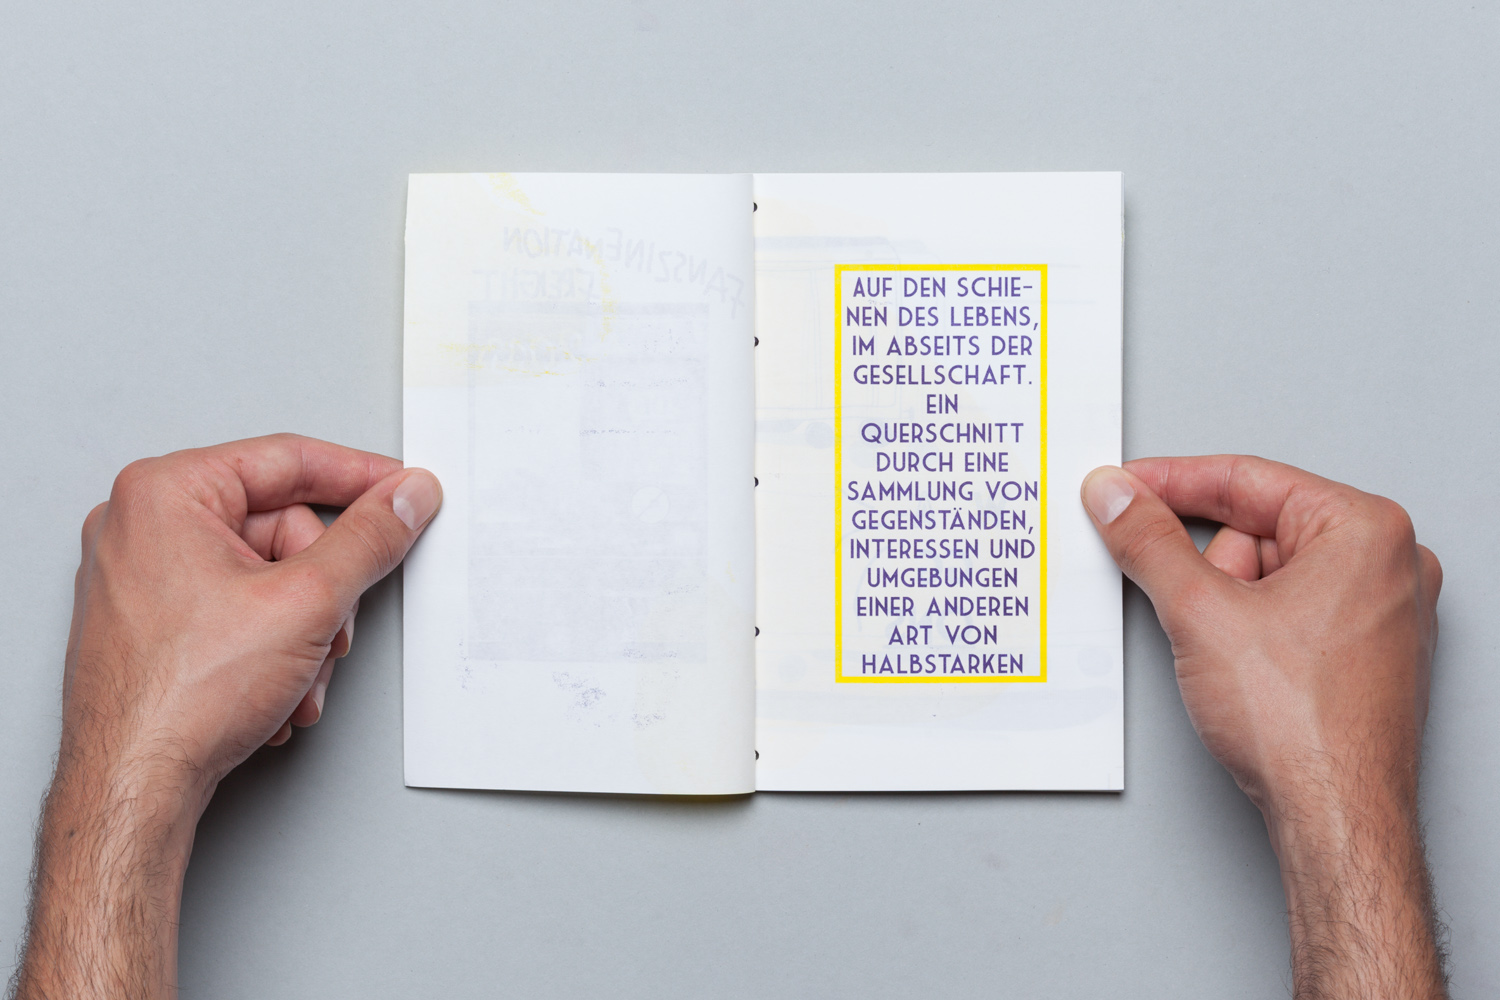 FANSZINENATION
AUF DEN SCHIE-
NEN DES LEBENS,
IM ABSEITS DER
GESELLSCHAFT.
EIN
QUERSCHNITT
DURCH EINE
SAMMLUNG VON
GEGENSTÄNDEN,
INTERESSEN UND
UMGEBUNGEN
EINER ANDEREN
ART VON
HALBSTARKEN